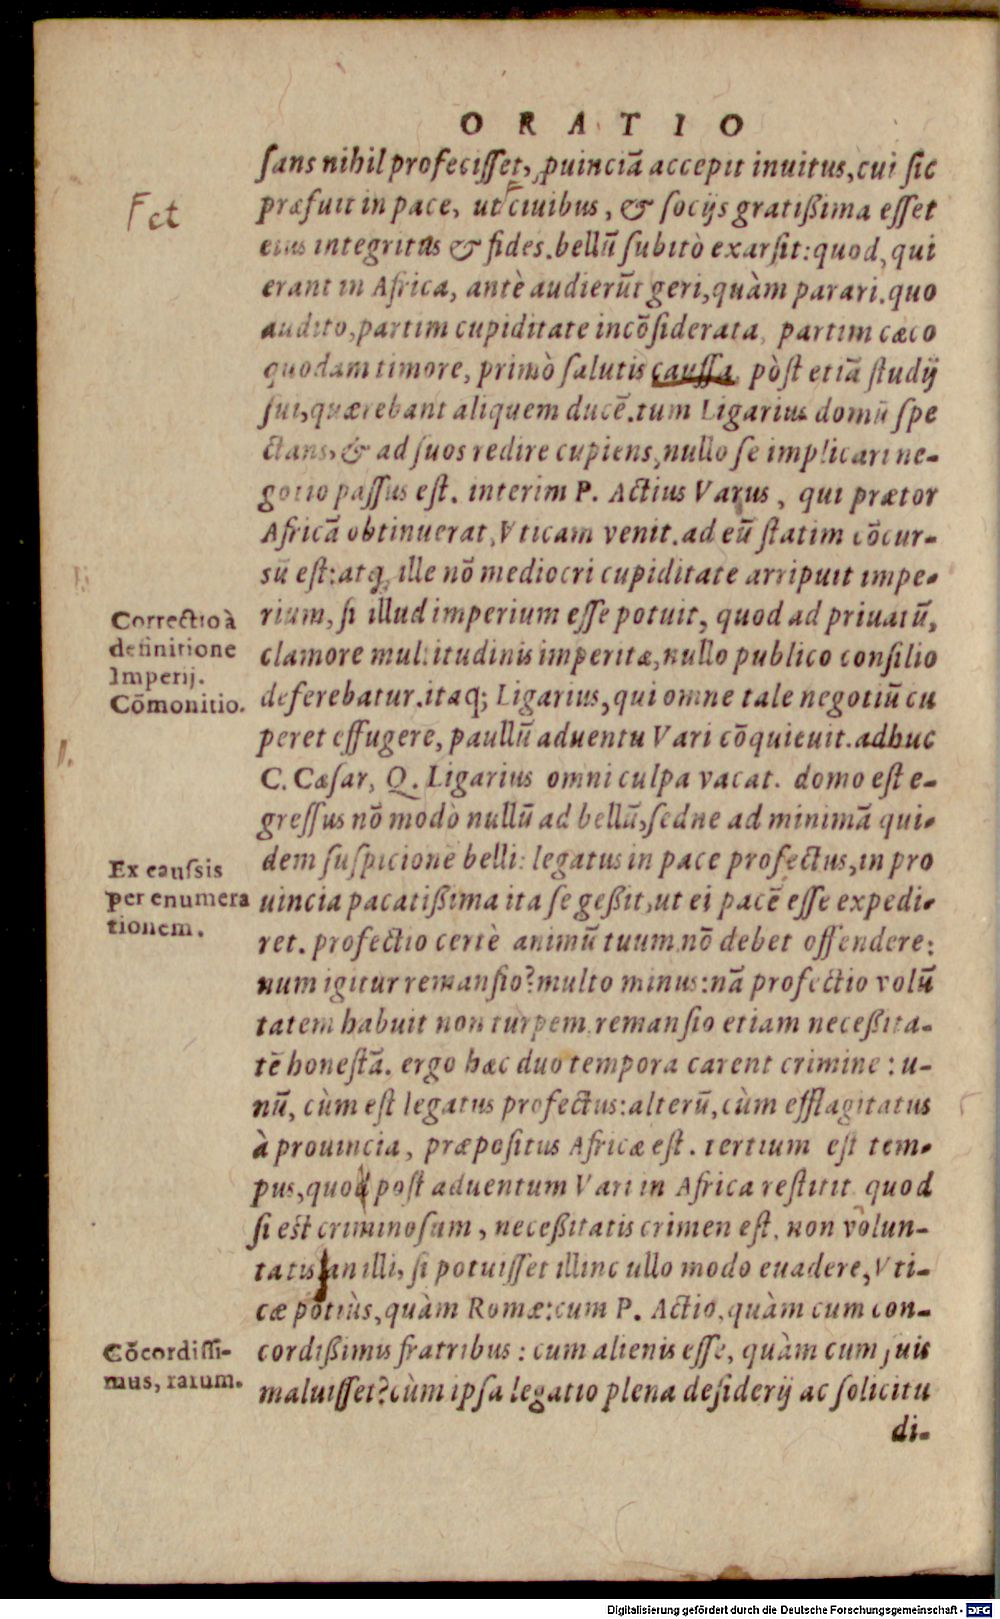 ORATIO
ſans nihil profeciſſet, ꝓuinciā accepit inuitus, cui ſic
Fct
præfuit in pace, ut ciuibus, & ſocijs gratißima eſſet
eius integritas & fides. bellū ſubitò exarſit: quod, qui
erant in Africa, antè audierūt geri, quàm parari. quo
audito, partim cupiditate incōſiderata, partim cæco
quodam timore, primò ſalutis cauſſa, pòſt etiā ſtudij
ſui, quærebant aliquem ducē. tum Ligarius domū ſpe
ctans, & ad ſuos redire cupiens, nullo ſe implicari ne-
gotio paſſus eſt. interim P. Actius Varus, qui prætor
Africā obtinuerat, Vticam venit. ad eū ſtatim cōcur-
sū eſt: atq; ille nō mediocri cupiditate arripuit impe-
rium, ſi illud imperium eſſe potuit, quod ad priuatū,
clamore multitudinis imperitæ, nullo publico conſilio
deferebatur. itaq; Ligarius, qui omne tale negotiū cu
Correctio à
definitione
Imperij.
Cōmonitio.
peret effugere, paullū aduentu Vari cōquieuit. adhuc
C. Cæſar, Q. Ligarius omni culpa vacat. domo eſt e-
greſſus nō modò nullū ad bellū, ſed ne ad minimā qui-
dem ſuſpicionē belli: legatus in pace profectus, in pro
uincia pacatißima ita ſe geßit, ut ei pacē eſſe expedi-
Ex cauſsis
per enumera
tionem.
ret. profectio certè animū tuum nō debet offendere:
num igitur remanſio? multo minus: nā profectio volū
tatem habuit non turpem, remanſio etiam neceßita-
tē honeſtā. ergo hæc duo tempora carent crimine: u-
nū, cùm eſt legatus profectus: alterū, cùm efflagitatus
à prouincia, præpoſitus Africæ eſt. tertium eſt tem-
pus, quod poſt aduentum Vari in Africa reſtitit. quod
ſi eſt criminoſum, neceßitatis crimen eſt, non volun-
tatis. an illi, ſi potuiſſet illinc ullo modo euadere, Vti-
cæ potiùs, quàm Romæ: cum P. Actio, quàm cum con-
cordißimis fratribus: cum alienis eſſe, quàm cum ſuis
maluiſſet? cùm ipſa legatio plena deſiderij ac ſolicitu
Cōcordiſſi-
mus, rarum.
di-
Digitalisierung gefördert durch die Deutsche Forschungsgemeinschaft - DFG